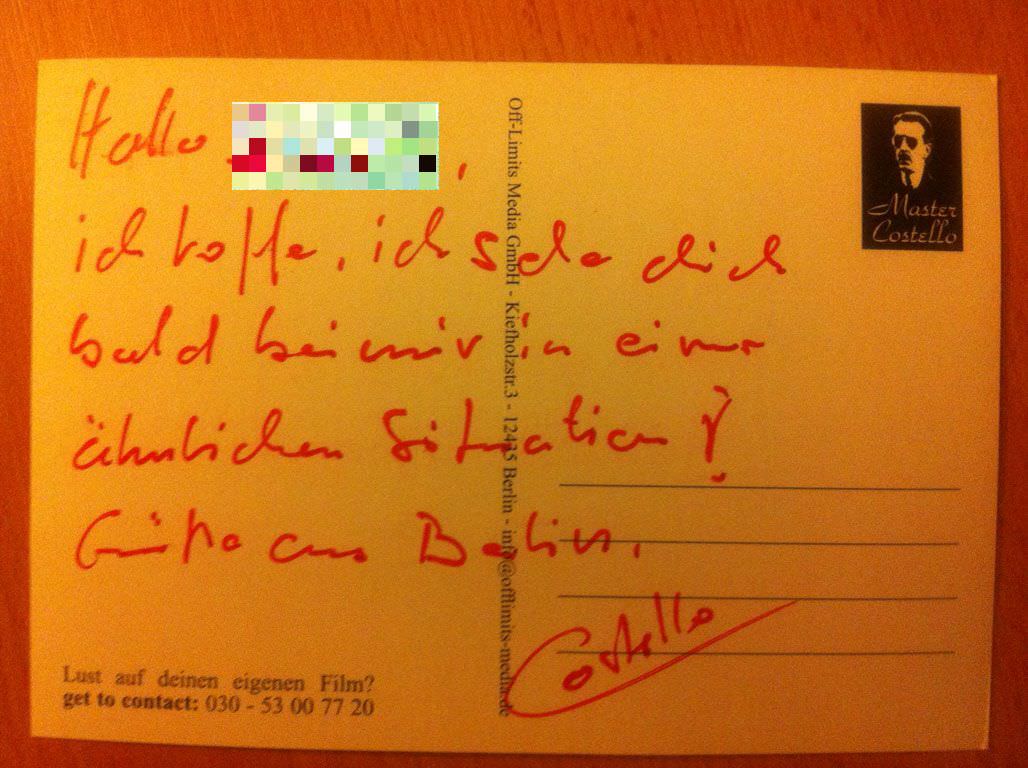 Hallo ,
ich hoffe, ich sehe dich
bald bei mir in einer
ähnlichen Situation!
Grüße aus Berlin.
Costello
Lust auf deinen eigenen Film?
get to contact: 030 - 53 00 77 20
Off-Limits Media GmbH - Kiefholzstr.3 - 12435 Berlin - info@offlimits-media.de
Master
Costello